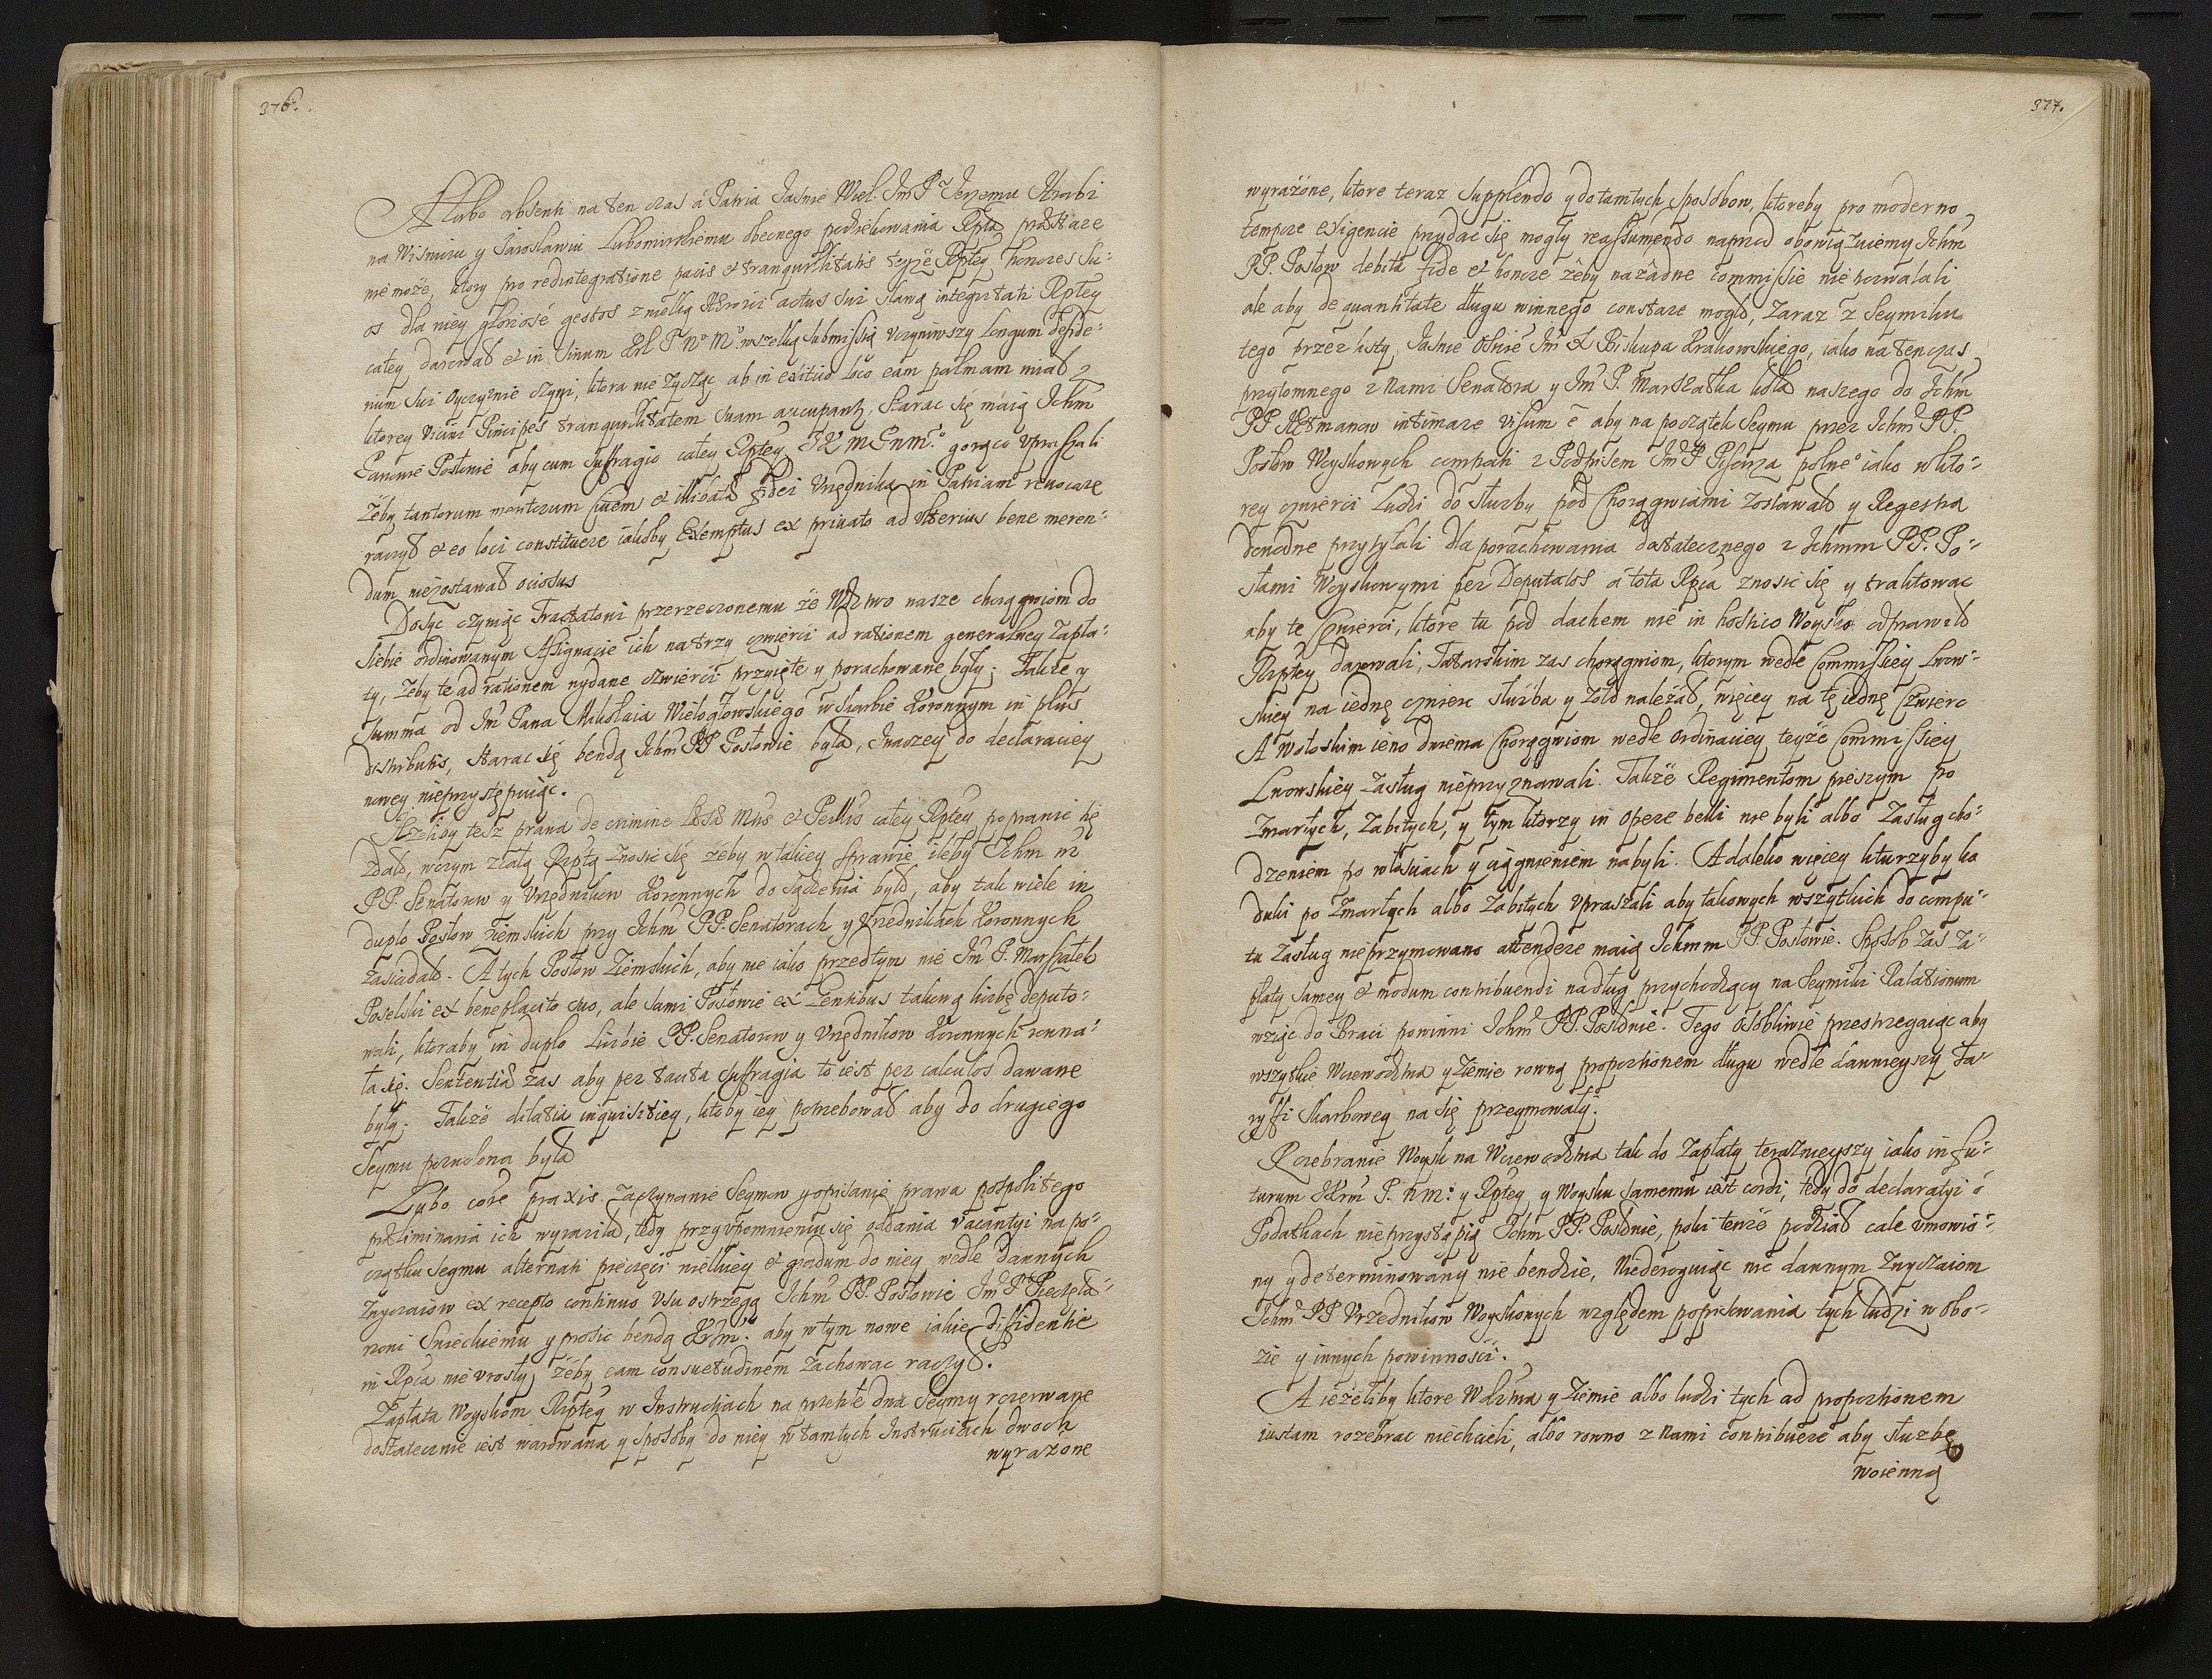 376.
A lubo absenti na ten czas á Patria Jasnie Wiel. Jm P. Jerzemu Hrabi
na Wisniczu y Jaroslawiu Lubomirskiemu obecnego podziekowania Rpta præstare
nie może, ktory pro redintegratione pacis et tranquillitatis teyże Rptey honores su-
os dla niey gloriosé gestos z wielką actus sui sławą integritati Rptey
całey darował et in sinum Krl P. N. M. wszelką submissią uczyniwszy longum deside-
rium sui oyczyznie czyni, ktora nie życząc ab in exitiuo loco eam palmam miał z
ktorey vicini Principes tranquillitatem suam aucupant, starac się maią Ichm
Panowie Posłowie aby cum suffragio całey Rptey J K M P n m. gorąco upraszali
żeby tantorum meritorum ciuem et illibatæ fidei Vrzędnika in Patriam reuocare
raczył et eo loci constituere iakoby exemptus ex priuato ad ulterius bene meren-
dum nie zostawał ociosus
Dosyc czyniąc Tractatowi przerzeczonemu że Wdztwo nasze chorągwiom do
siebie ordinowanym Assignacie ich na trzy cwierci ad rationem generalney zapła-
ty, żeby te ad rationem wydane czwierci przyięte y porachowane były; Także y
summa od Jm Pana Mikołaia Wielogłowskiego w skarbie Koronnym in plus
distributis, starac się bendą Ichm PP Posłowie była, Inaczey do declaraciey
nowey nieprzystępuiąc.
Jeżeliby tesz prawa de crimine læsæ Mtis et Perduellis całey Rptey poprawic się
zdało, wczym z całą Rptą znosic się żeby w takiey sprawie ileby Ichm m
PP. Senatorow y Vrzędnikow Koronnych do sądzenia było, aby tak wiele in
duplo Posłow ziemskich przy Ichm PP. Senatorach y Vrzednikach Koronnych
zasiadało. A tych Posłow Ziemskich, aby nie iako przedtym nie Jm P. Marszałek
Poselski ex beneplacito suo, ale sami Posłowie ex Gentibus takową liczbę deputo-
wali, ktoraby in duplo Liczbie PP. Senatorow y Vrzędnikow Koronnych rowna-
ła się. Sententia zas aby per tacita suffragia to iest per calculos dawane
były. Także dilatia inquisitiey, ktoby iey potrzebował aby do drugiego
Seymu pozwolona była
Lubo core praxis zaczynanie Seymow y opisanie prawa pospolitego
præliminaria ich wyraziło, tedy przy upomnieniu się oddania vacantyi na po-
czątku seymu alternati pieczęci wielkiey et gradum do niey wedle dawnych
zwyczaiow ex recepto continuo usu ostrzegą Ichm PP. Posłowie Jm P Pieczęta-
rzowi Swieckiemu y prosic bendą Krm. aby w tym nowe iakie diffidentie
in Rpca nie urosły, żeby eam consuetudinem zachowac raczył.
Zapłata Woyskom Rptey w Instructiach na przeszłe dwa Seymy rozerwane
dostatecznie iest warowana y sposoby do niey w tamtych Instructiach dwoch
wyrażone
377.
wyrażone, ktore teraz supplendo y do tamtych sposobow, ktoreby pro moderno
tempore exigencie przydac się mogły reassumendo naprzod obowiązuiemy Ichm
PP. Posłow debita fide et honore żeby na żadne commissie nie pozwalali
ale aby de quantitate długu winnego constare mogło, zaraz z Seymiku
tego przez listy Jasnie Oswie Jm X Biskupa Krakowskiego, iako na tenczas
przytomnego z nami Senatora y Jm P. Marszałka koła naszego do Ichm
PP Hetmanow intimare visum e aby na początek Seymu przez Ichm PP.
Posłow Woyskowych comput z Podpisem Jm P Pisarza polne iako w kto-
rey cwierci Ludzi do służby pod Chorągwiami zostawało y Regestra
dowodne przysyłali dla porachowania dostatecznego z Ichmm PP. Po-
słami Woyskowymi per Deputatos á tota Rpca znosic się y traktowac
aby te czwierci, ktore tu pod dachem nie in hostico Woysko odprawiło
Rzptey darowali, Tatarskim zas chorągwiom, ktorym wedle Commissiey Lwow-
skiey na iednę cwierc służba y żołd należał, więcey na tę iednę czwierc
A Wołoskim ieno dwiema Chorągwiom wedle Ordinaciey teyże Commissiey
Lwowskiey zasług nieprzyznawali. Także Regimentom pieszym po
zmarłych, zabitych, y tym ktorzy in opere belli nie byli albo zasług cho-
dzeniem po włosciach y ciągnieniem nabyli. A daleko więcey kturzyby ka
duki po zmarłych albo zabitych upraszali aby takowych wszytkich do compu-
tu zasług nieprzymowano attendere maią Ichmm PP. Posłowie. Sposob zas za-
płaty samey et modum contribuendi na dług przychodzący na Seymiki Relationum
wziąc do Braci powinni Ichm PP. Posłowie. Tego osobliwie przestrzegaiąc aby
wszytkie Woiewodztwa y Ziemie rowną proportionem długu wedle dawnieyszy Ta-
ryffi skarbowey na się przeymowały.
Rozebranie Woysk na Woiewodztwa tak do Zapłaty teraznieyszy iako in fu-
turum JKrm P. n m. y Rptey y Woysku samemu iest cordi, tedy do declaratyi o
Podatkach nieprzystąpią Ichm PP. Posłowie, poki tenże podział cale umowio-
ny y determinowany nie bendzie, Niederoguiąc nic dawnym zwyczaiom
Ichm PP Vrzednikow Woyskowych względem popisowania tych ludzi w obo-
zie y innych powinnosci.
A ieżeliby ktore Wdztwa y Ziemie albo ludzi tych ad proportionem
iustam rozebrac niechcieli, albo rowno z nami contribuere aby służbę
woienną